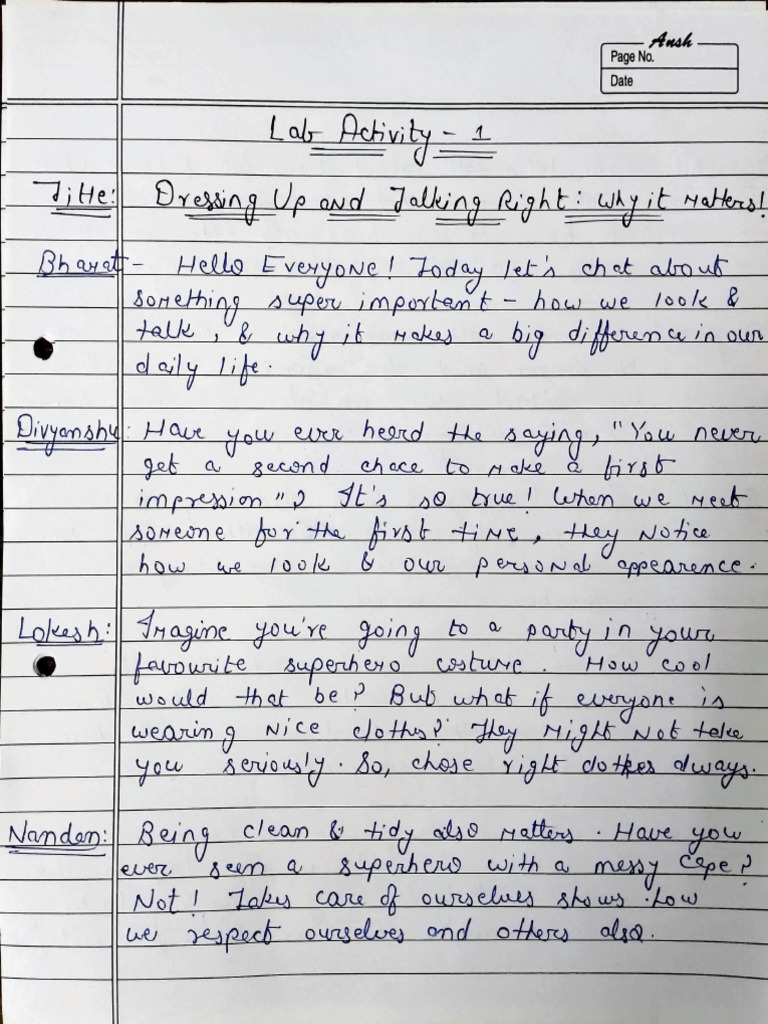 Ansh
Page No.
Date
Lab Activity - 1
Title: Dressing Up and Talking Right: Why it Matters!
Bharat - Hello Everyone! Today let's chat about
something super important - how we look &
talk, & why it makes a big difference in our
daily life.
Divyanshu: Have you ever heard the saying, "You never
get a second chace to make a first
impression"? It's so true! When we meet
someone for the first time, they notice
how we look & our personal appearence.
Lokesh: Imagine you're going to a party in your
favourite superhero costume. How cool
would that be? But what if everyone is
wearing nice clothes? They might not take
you seriously. So, chose right clothes always.
Nanden: Being clean & tidy also matters. Have you
ever seen a superhero with a messy cape?
Not! Takes care of ourselves shows how
we respect ourselves and others also.